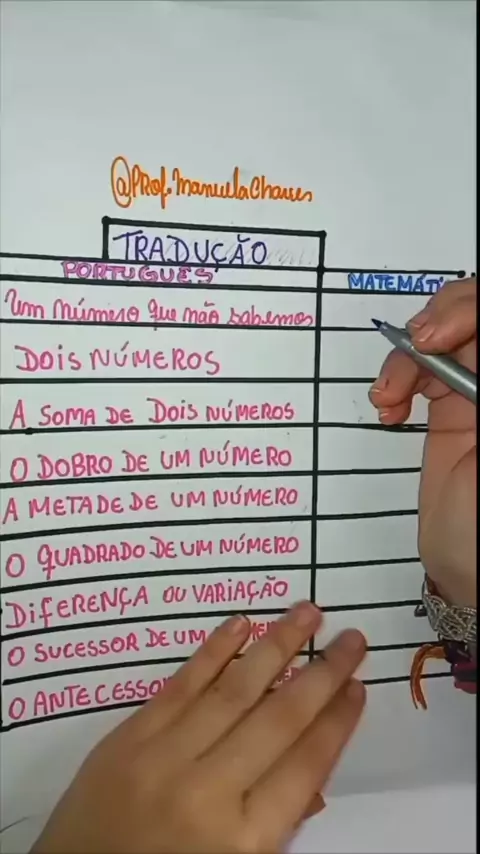 @Prof.ManuelaChaves
TRADUÇÃO
PORTUGUÊS
MATEMÁTI
Um número que não sabemos
DOIS NÚMEROS
A SOMA DE DOIS NÚMEROS
O DOBRO DE UM NÚMERO
A METADE DE UM NÚMERO
O QUADRADO DE UM NÚMERO
DIFERENÇA OU VARIAÇÃO
O SUCESSOR DE UM
O ANTECESSO